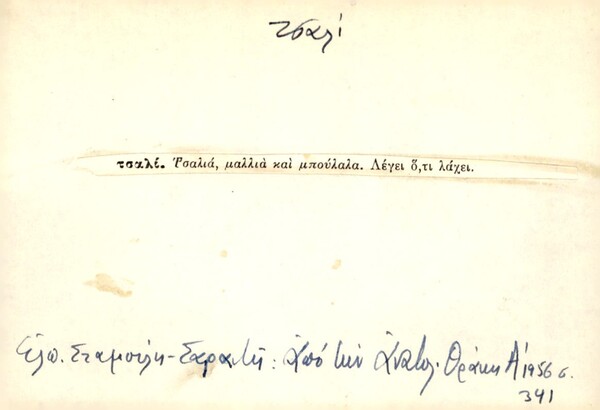 τσαλί
τσαλέ. Τσαλιά, μαλλιὰ καὶ μπούλαλα. Λέγει ὅ,τι λάχει.
Ἐλπ. Σταμούλη-Σαραντῆ: Ἀπὸ τὴν Ἀνατολ. Θράκη Α' 1956 σ.
341